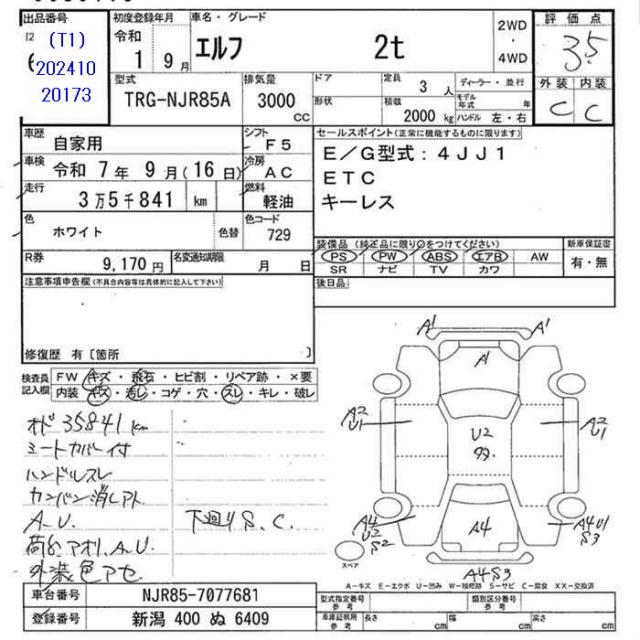 出品番号 初度登録年月 車名・グレード 2WD・4WD 評価点
(T1) 令和 1 9月 エルフ 2t 3.5
202410
20173
型式 排気量 ドア 定員 ディーラー・並行 外装 内装
TRG-NJR85A 3000 CC 3人 モデル年式 年 C C
形状 積載 2000 kg ハンドル 左・右
車歴 自家用 シフト F5 セールスポイント(正常に機能するものに限ります)
車検 令和 7年 9月(16日) 冷房 AC E/G型式:4JJ1
走行 3万5千841 km 燃料 軽油 ETC
キーレス
色 ホワイト 色替 色コード 729
R券 9,170円 名変通知期限 月 日 装備品(純正品に限り○をつけてください) 新車保証書
PS PW ABS エアB AW 有・無
SR ナビ TV カワ
注意事項申告欄(不具合内容等は具体的に記入して下さい) 後日品
修復歴 有〔箇所 〕
検査員記入欄 FW キズ・飛石・ヒビ割・リペア跡・×要
内装 キズ・汚レ・コゲ・穴・スレ・キレ・破レ
オド35841km
シートカバー付
ハンドルスレ
カンバン消しアト
A.U. 下廻りS.C.
荷台、アオリ、A.U.
外装色アセ
A1 A1
A1
A2 U1 A2 U1
U2
A4 U2 S2 A4 A4U1 S3
A4S3
スペア
A-キズ E-エクボ U-凹み W-補修跡 S-サビ C-腐食 XX-交換済
車台番号 NJR85-7077681 型式指定番号 参考 類別区分番号 参考
登録番号 新潟 400 ぬ 6409 車庫証明用 参考 長さ cm 幅 cm 高さ cm